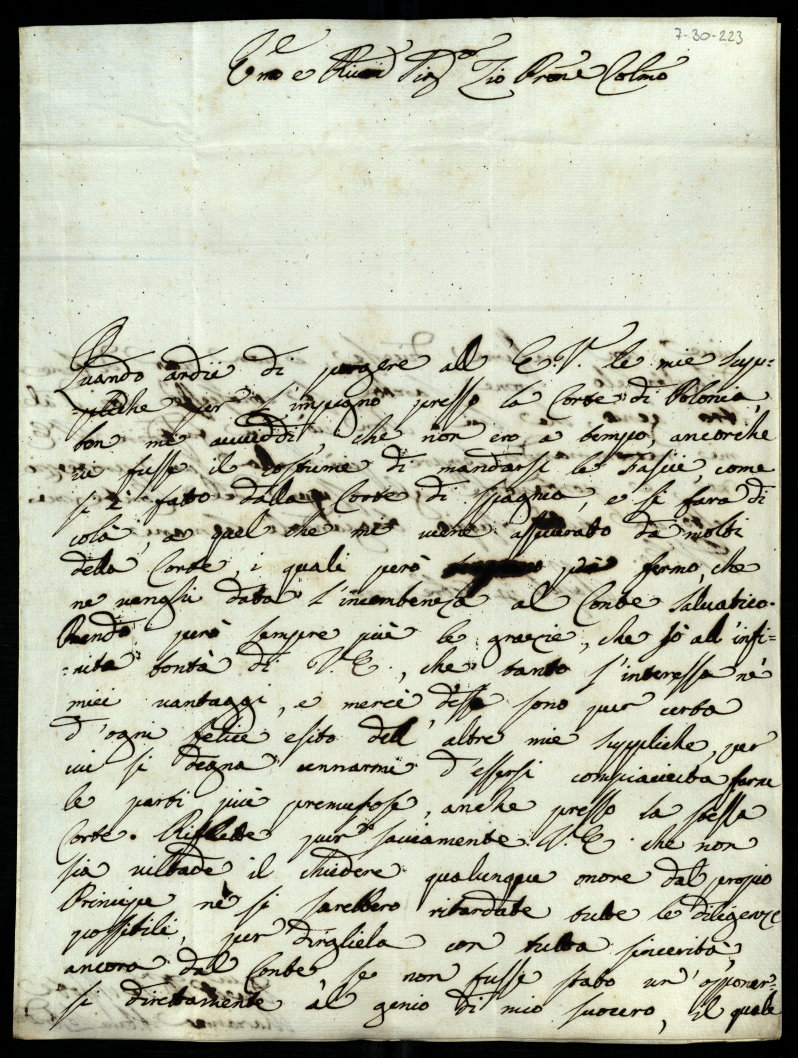 7-30-223
Quando ardij di porgere all' E.V. le mie sup=
=pliche per l'impegno presso la Corte di Polonia,
ben mi avveddi, che non ero a tempo, ancorche
vi fusse il costume di mandarsi le fascie, come
si è fatto dalla Corte di Spagna, e si farà di
colà, a quel che mi viene assicurato da molti
della Corte, i quali però fermo, che
ne venghi data l'incombenza al Conte Salvatico.
Rendo però sempre più le grazie, che sò all'infi=
=nita bontà di V.E., che tanto s'interessa ne'
miei vantaggi, e mercè d'essa sono pur certa
d'ogni felice esito dell' altre mie suppliche, per
cui si degna cennarmi d'essersi compiaciuta farne
le parti più premurose, anche presso la stessa
Corte. Riflette pur saviamente V.E. che non
sia viltade il chiedere qualunque onore dal propio
Principe nè si sarebbero ritardate tutte le diligenze
possibili, per dirgliela con tutta sincerità,
ancora dal Conte se non fusse stato un' opporer=
si direttamente al genio di mio suocero, il quale